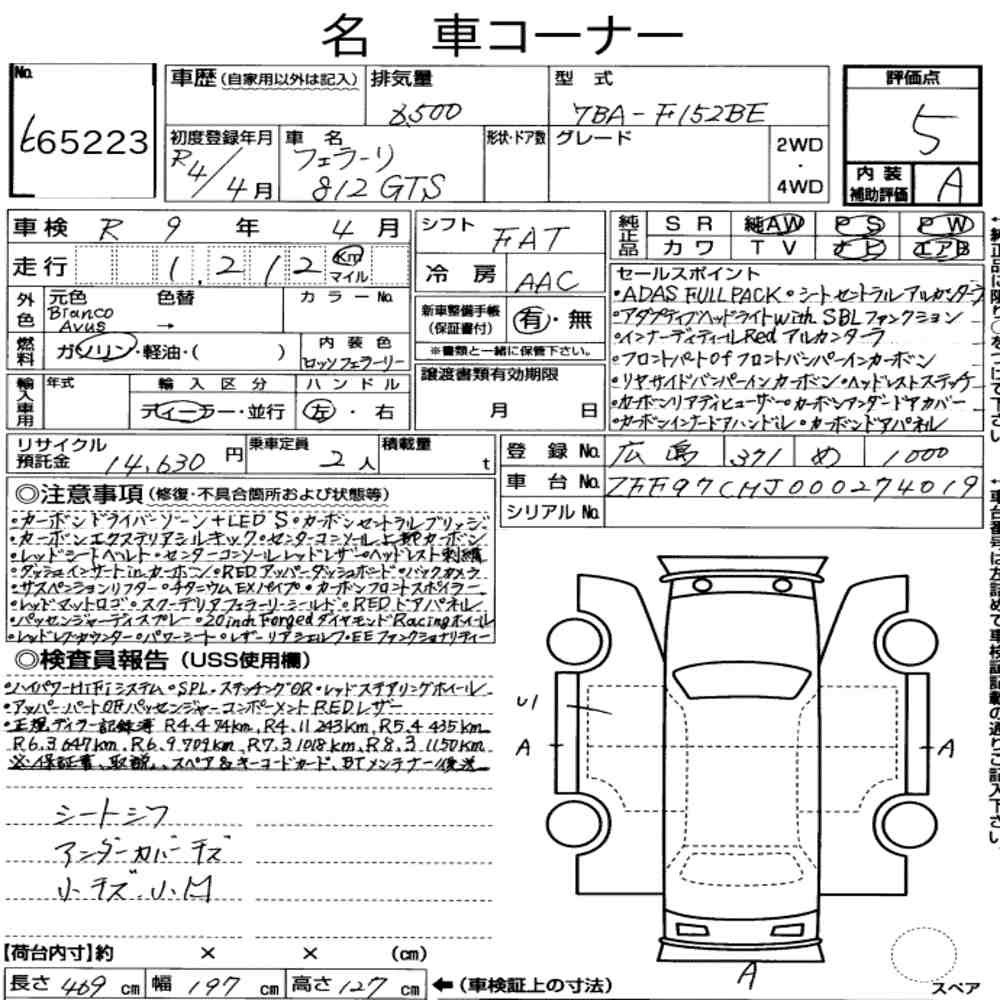 名 車コーナー
No.
65223
車歴 (自家用以外は記入)
排気量
6,500
型式
7BA-F152BE
評価点
5
内装補助評価
A
初度登録年月
R4/4月
車名
フェラーリ
812 GTS
形状・ドア数
グレード
2WD
・
4WD
車検 R 9 年 4 月
走行 1,212 Km マイル
シフト FAT
冷房 AAC
純正品
SR 純AW PS PW
カワ TV ナビ エアB
外色
元色 色替 カラーNo.
Bianco
Avus →
燃料
ガソリン・軽油・( )
内装色
ロッソフェラーリー
新車整備手帳
(保証書付)
有・無
※書類と一緒に保管下さい。
輸入車用
年式
輸入区分
ディーラー・並行
ハンドル
左・右
譲渡書類有効期限
月 日
セールスポイント
・ADAS FULL PACK・シートセントラルアルカンターラ
・アダプティブヘッドライトwith SBLファンクション
・インナーディティールRedアルカンターラ
・フロントパートofフロントバンパーインカーボン
・リヤサイドバンパーインカーボン・ヘッドレストステッチ
・カーボンリアディヒューザー・カーボンアンダードアカバー
・カーボンインナードアハンドル・カーボンドアパネル
リサイクル預託金 14,630 円
乗車定員 2 人
積載量 t
登録No. 広島 371 め 1000
車台No. ZFF97CMJ000274019
シリアルNo.
◎注意事項 (修復・不具合箇所および状態等)
・カーボンドライバーゾーン+LED S・カーボンセントラルブリッジ
・カーボンエクステリアシルキック・センターコンソール上純カーボン
・レッドシートベルト・センターコンソールレッドレザー・ヘッドレスト刺繍
・ダッシュインサートinカーボン・REDアッパーダッシュボード・バックカメラ
・サスペンションリフター・チタニウムEXパイプ・カーボンフロントスポイラー
・レッドマットロゴ・スクーデリアフェラーリシールド・REDドアパネル
・パッセンジャーディスプレー・20inch ForgedダイヤモンドRacingホイール
・レッドレブカウンター・パワーシート・レザーリアシェルフ・EEファンクショナリティー
◎検査員報告 (USS使用欄)
・ハイパワーHiFiシステム・SPL.ステッチングOR・レッドステアリングホイール
・アッパーパートOFパッセンジャーコンポーメントREDレザー
・正規ディラー記録簿 R4.4 74km, R4.11 243km, R5.4 435km
R6.3 647km, R6.9 709km, R7.3 1018km, R8.3 1150km
※保証書、取説、スペア&キーコードカード、BTメンテナー後送
シートシワ
アンダーカバーキズ
小キズ.小凹
U1
A
A
A
【荷台内寸】約 × × (cm)
長さ 469 cm 幅 197 cm 高さ 127 cm ←(車検証上の寸法)
スペア